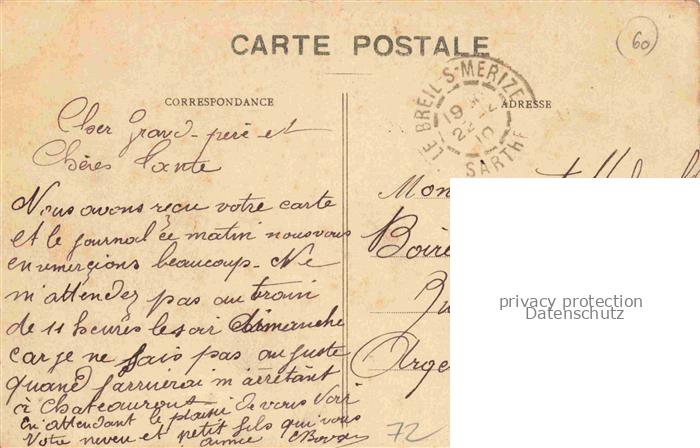 CARTE POSTALE
60
CORRESPONDANCE
ADRESSE
LE BREIL-S-MERIZE
19
2 10
SARTHE
Cher Grand-père et
Chères Tante
Nous avons reçu votre carte
et le journal ce matin nous vous
en remerçions beaucoup. Ne
m'attendez pas au train
de 11 heures le soir dimanche
car je ne sais pas au juste
quand j'arriverai m'arrêtant
à Chateauroux
En attendant le plaisir de vous voir
Votre neveu et petit fils qui vous
aime
Mon
Boire
Arge
privacy protection
Datenschutz
72